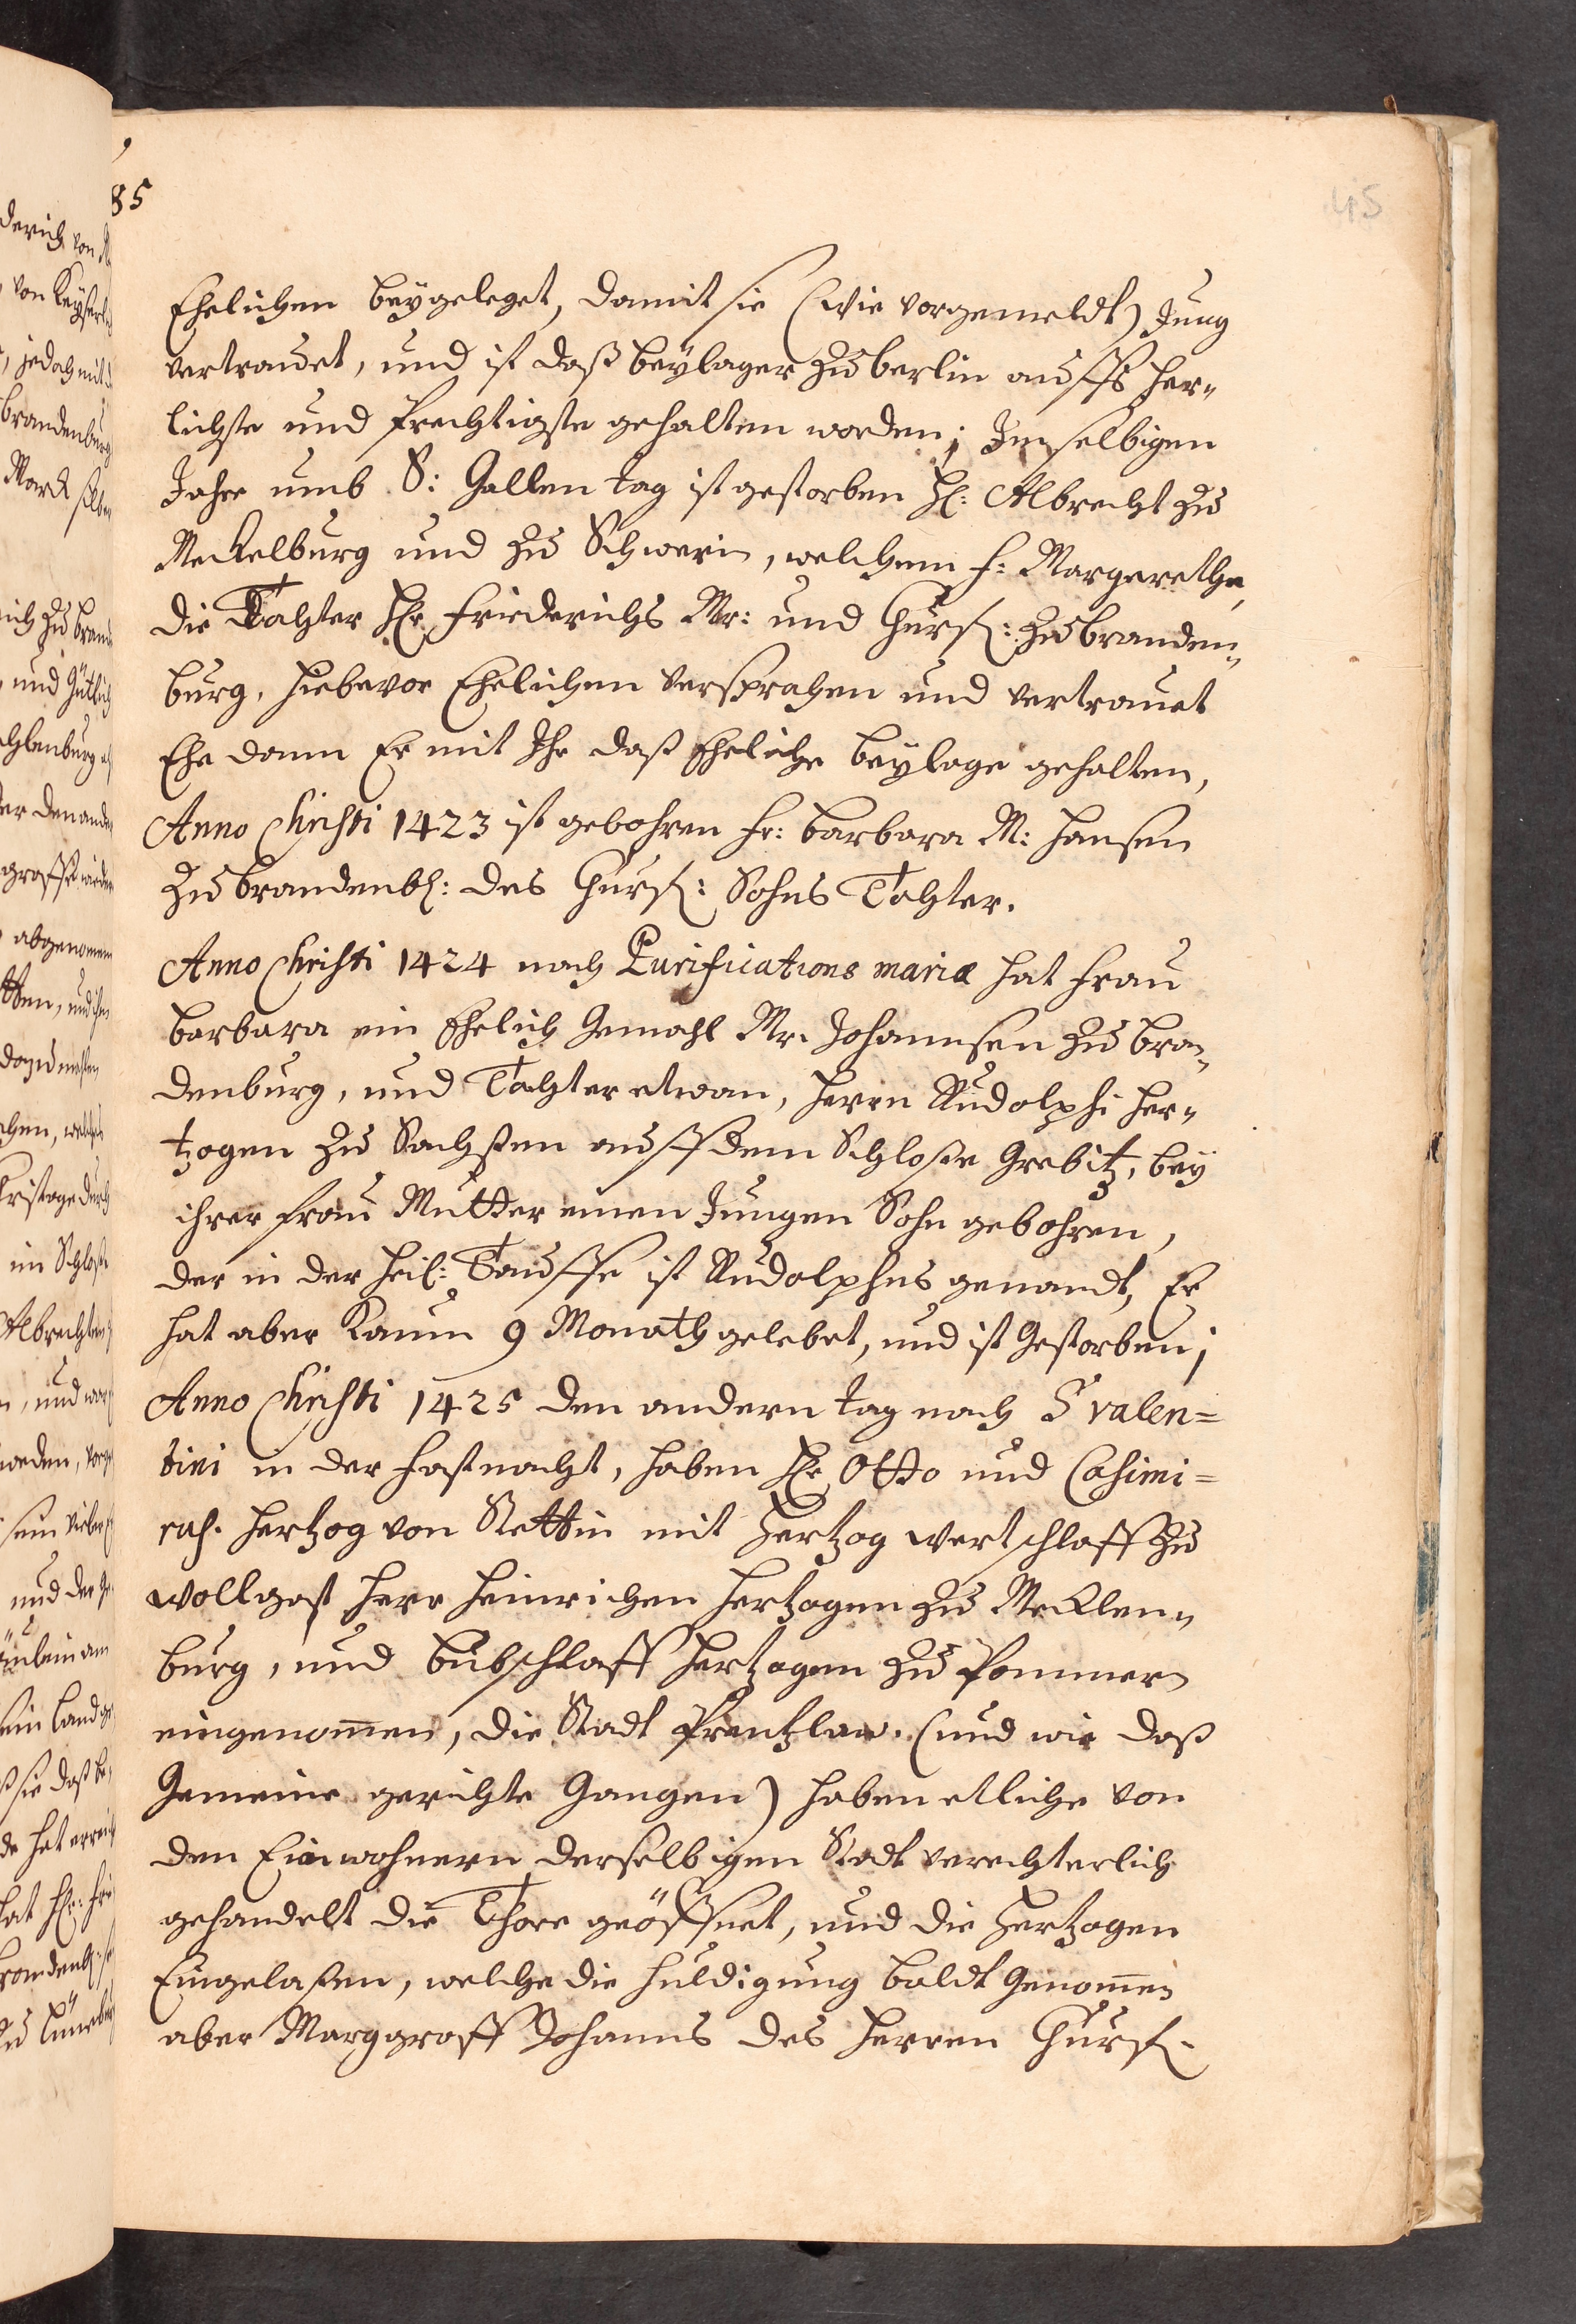 85
45
Ehelichen beygeleget, damit sie (wie vorgemeldt) Jung
vertrauet, und ist daß beylager zu berlin auffs her„
lichste und prechtigste gehalten worden; Im selbigen
Jahre umb S: Gallen tag ist gestorben H: Albrecht zu
Meckelburg und zu Schwerin, welchem f: Margarethe,
die Tochter Hr Friederichs Mr: und Churf: zu branden„
burg, hiebevor Ehelichen versprochen und vertrauet
Ehe dann Er mit Ihr daß Eheliche beylage gehalten,
Anno Christi 1423 ist gebohren fr: barbara M: hansen
zu brandenb: des Churf: Sohns Tochter.
Anno Christi 1424 nach Purifications mariæ hat frau
barbara ein Ehelich Gemahl Mr. Johannsen zu bran„
denburg, und Tochter etwan, herrn Rudolphi her„
tzogen zu Sachßen auff dem Schloße Grebitz, bey
ihrer frau Mutter einen Jungen Sohn gebohren,
der in der heil: Tauffe ist Rudolphus genandt, Er
hat aber kaum 9 Monath gelebet, und ist Gestorben;
Anno Christi 1425 den andern tag nach S valen=
tini in der fastnacht, haben Hr Otto und Casimi=
rus. hertzog von Stettin mit Hertzog wertschlaff zu
wollgast herr heinrichen hertzogen zu Mecklen„
burg, und bubschlaff hertzogen zu Pommern
eingenom̄en, die Stadt Prentzlaw. (und wie daß
Gemeine gerichte Gangen) haben etliche von
den Einwohnern derselbigen Stadt verechterlich
gehandelt die Thore geöffnet, und die Hertzogen
Eingelaßen, welche die huldigung baldt Genom̄en
aber Marggraff Johanns des herren Churf.